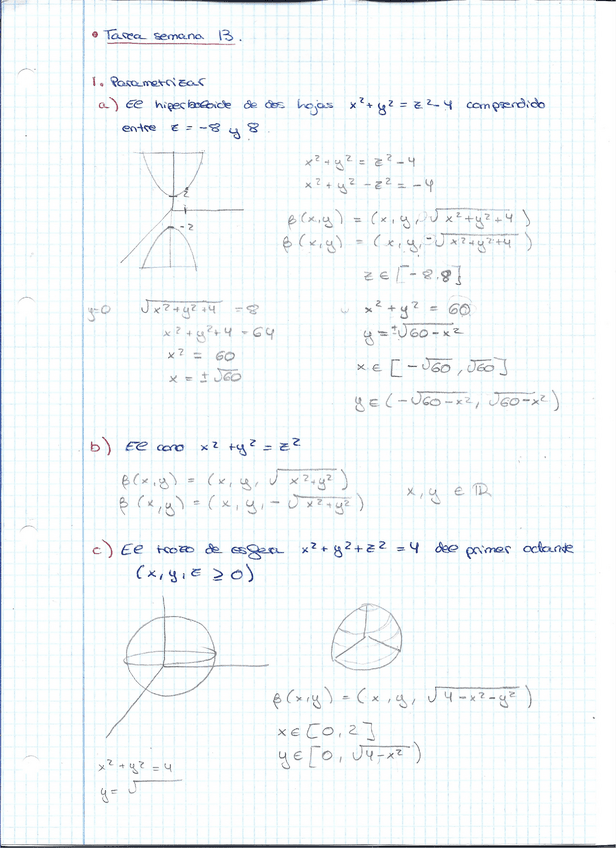 • Tarea semana 13.
1. Parametrizar
a) El hiperboloide de dos hojas x²+y² = z²-4 comprendido
entre z = -8 y 8.
x² + y² = z² - 4
x² + y² - z² = -4
2
1
-2
β(x,y) = (x, y, √x²+y²+4)
β(x,y) = (x, y, -√x²+y²+4)
z ∈ [-8.8]
y=0 √x²+y²+4 = 8
x²+y²+4 = 64
x² = 60
x = ±√60
x² + y² = 60
y = ±√60-x²
x ∈ [-√60, √60]
y ∈ (-√60-x², √60-x²)
b) El cono x² + y² = z²
β(x,y) = (x, y, √x²+y²)
β(x,y) = (x, y, -√x²+y²)
x, y ∈ ℝ
c) El trozo de esfera x² + y² + z² = 4 del primer octante
(x, y, z ≥ 0)
β(x,y) = (x, y, √4-x²-y²)
x ∈ [0, 2]
y ∈ [0, √4-x²)
x² + y² = 4
y = √